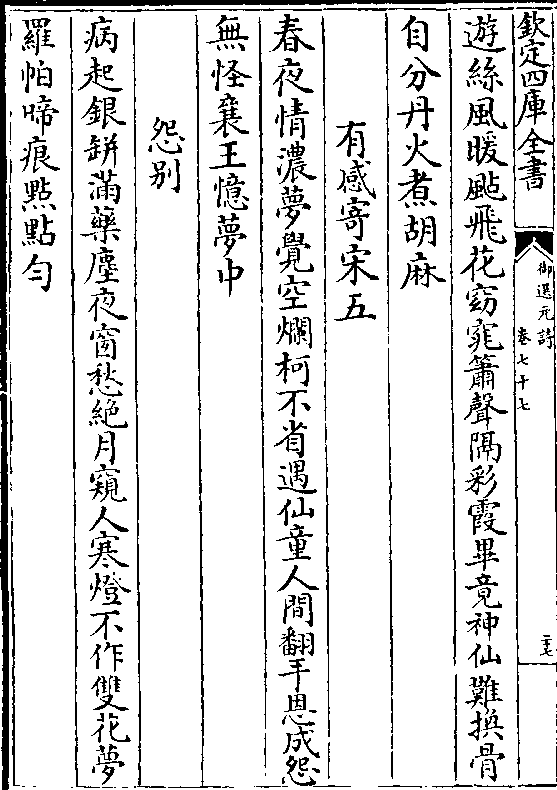 欽定四庫全書
御選元詩
卷七十七
二十七
遊絲風暖颭飛花窈窕簫聲隔彩霞畢竟神仙難換骨
自分丹火煮胡麻
有感寄宋五
春夜情濃夢覺空爛柯不省遇仙童人間翻手恩成怨
無怪襄王憶夢中
怨别
病起銀缾滿藥塵夜窗愁絕月窺人寒燈不作雙花夢
羅帕啼痕點點勻